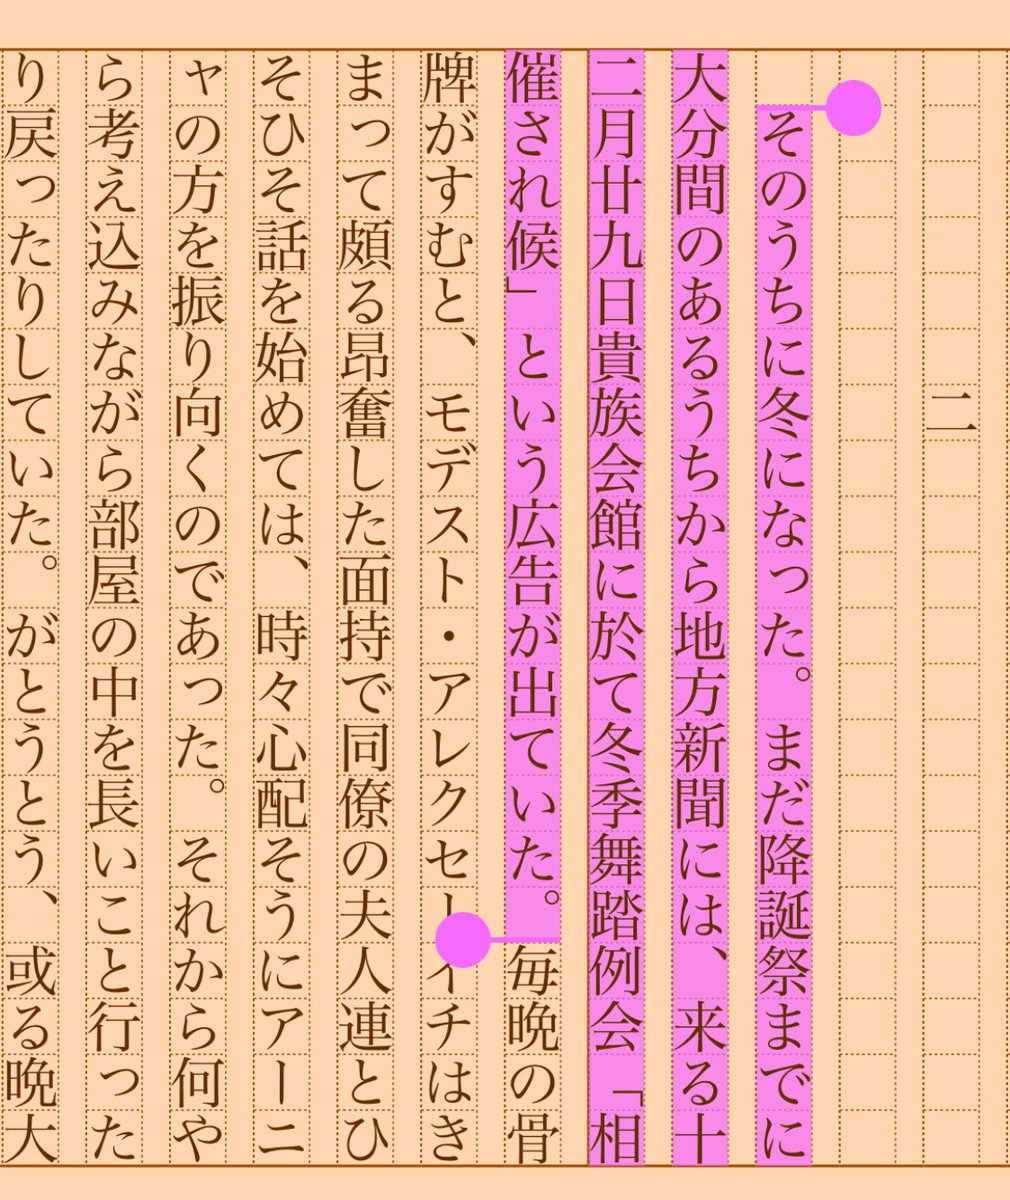 二
そのうちに冬になった。まだ降誕祭までに
大分間のあるうちから地方新聞には、来る十
二月廿九日貴族会館に於て冬季舞踏例会「相
催され候」という広告が出ていた。毎晩の骨
牌がすむと、モデスト・アレクセーイチはき
まって頗る昂奮した面持で同僚の夫人連とひ
そひそ話を始めては、時々心配そうにアーニ
ャの方を振り向くのであった。それから何や
ら考え込みながら部屋の中を長いこと行った
り戻ったりしていた。がとうとう、或る晩大